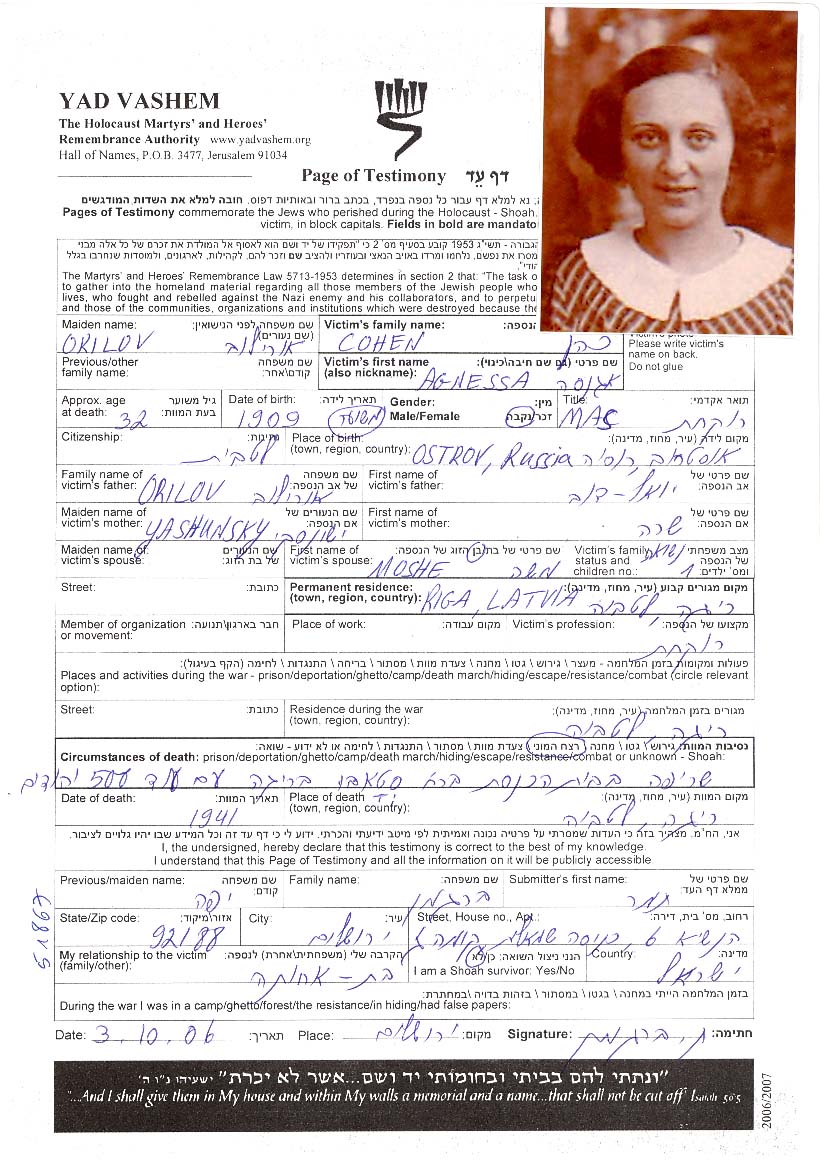 YAD VASHEM
The Holocaust Martyrs' and Heroes'
Remembrance Authority www.yadvashem.org
Hall of Names, P.O.B. 3477, Jerusalem 91034
Page of Testimony דף עד
נא למלא דף עבור כל נספה בנפרד, בכתב ברור ובאותיות דפוס. חובה למלא את השדות המודגשים
Pages of Testimony commemorate the Jews who perished during the Holocaust - Shoah.
victim, in block capitals. Fields in bold are mandato
הגבורה - תשי"ג 1953 קובע בסעיף מס' 2 כי "תפקידו של יד ושם הוא לאסוף אל המולדת את זכרם של כל אלה מבני
מסרו את נפשם, נלחמו ומרדו באויב הנאצי ובעוזריו ולהציב שם וזכר להם, לקהילות, לארגונים, ולמוסדות שנחרבו בגלל
The Martyrs' and Heroes' Remembrance Law 5713-1953 determines in section 2 that: "The task o
to gather into the homeland material regarding all those members of the Jewish people who
lives, who fought and rebelled against the Nazi enemy and his collaborators, and to perpetu
and those of the communities, organizations and institutions which were destroyed because the
Maiden name: שם משפחה לפני הנישואין: (שם נעורים) ORILOV אורילוב
Victim's family name: הנספה: COHEN כהן
Victim's photo
Please write victim's
name on back.
Do not glue
Previous/other family name: שם משפחה קודם\אחר:
Victim's first name (also nickname): שם פרטי (גם שם חיבה\כינוי): AGNESSA אגנסה
Approx. age at death: 32 גיל משוער בעת המוות:
Date of birth: תאריך לידה: 1909 משוער
Gender: Male/Female מין: זכר\נקבה
Title: תואר אקדמי: MAG רוקחת
Citizenship: נתינות: לטבית
Place of birth (town, region, country): מקום לידה (עיר, מחוז, מדינה): OSTROV, Russia אוסטרוב, רוסיה
Family name of victim's father: שם משפחה של אב הנספה: ORILOV אורילוב
First name of victim's father: שם פרטי של אב הנספה: יואל-דוב
Maiden name of victim's mother: שם הנעורים של אם הנספה: YASHUNSKY ישונסקי
First name of victim's mother: שם פרטי של אם הנספה: שרה
Maiden name of victim's spouse: שם הנעורים של בת הזוג:
First name of victim's spouse: שם פרטי של בת\בן הזוג של הנספה: MOSHE משה
Victim's family status and children no.: מצב משפחתי של הנספה ומס' ילדים: נשואה 1
Street: כתובת:
Permanent residence: (town, region, country): מקום מגורים קבוע (עיר, מחוז, מדינה): RIGA, LATVIA ריגה, לטביה
Member of organization or movement: חבר בארגון\תנועה:
Place of work: מקום עבודה:
Victim's profession: מקצועו של הנספה: רוקחת
פעולות ומקומות בזמן המלחמה - מעצר \ גירוש \ גטו \ מחנה \ צעדת מוות \ מסתור \ בריחה \ התנגדות \ לחימה (הקף בעיגול):
Places and activities during the war - prison/deportation/ghetto/camp/death march/hiding/escape/resistance/combat (circle relevant
option):
Street: כתובת:
Residence during the war (town, region, country): מגורים בזמן המלחמה (עיר, מחוז, מדינה): ריגה, לטביה
נסיבות המוות: גירוש\ גטו \ מחנה \ רצח המוני \ צעדת מוות \ מסתור \ התנגדות \ לחימה או לא ידוע - שואה:
Circumstances of death: prison/deportation/ghetto/camp/death march/hiding/escape/resistance/combat or unknown - Shoah:
שריפה בבית הכנסת ברח' סטאבו בריגה עם עוד 500 יהודים
Date of death: תאריך המוות: 1941
Place of death (town, region, country): מקום המוות (עיר, מחוז, מדינה): ריגה, לטביה
אני, החי"מ, מצהיר בזה כי העדות שמסרתי על פרטיה נכונה ואמיתית לפי מיטב ידיעתי והכרתי. ידוע לי כי דף עד זה וכל המידע שבו יהיו גלויים לציבור.
I, the undersigned, hereby declare that this testimony is correct to the best of my knowledge.
I understand that this Page of Testimony and all the information on it will be publicly accessible.
Previous/maiden name: שם משפחה קודם: יפה
Family name: שם משפחה: ברגמן
Submitter's first name: שם פרטי של ממלא דף העד: תמר
State/Zip code: אזור\מיקוד: 92188
City: עיר: ירושלים
Street, House no., Apt.: רחוב, מס' בית, דירה: הנשיא 6, כניסה שמאלית קומה 2
My relationship to the victim (family/other): הקרבה שלי (משפחתית\אחרת) לנספה: בת-אחותה
I am a Shoah survivor: Yes/No הנני ניצול השואה: כן\לא
Country: מדינה: ישראל
בזמן המלחמה הייתי במחנה \ בגטו \ במסתור \ בזהות בדויה \ במחתרת:
During the war I was in a camp/ghetto/forest/the resistance/in hiding/had false papers:
Date: 3.10.06 תאריך: Place: ירושלים מקום: Signature: ת. ברגמן חתימה:
"ונתתי להם בביתי ובחומותי יד ושם...אשר לא יכרת" ישעיהו נ"ו ה'
"...And I shall give them in My house and within My walls a memorial and a name...that shall not be cut off" Isaiah 56:5
51867
2006/2007